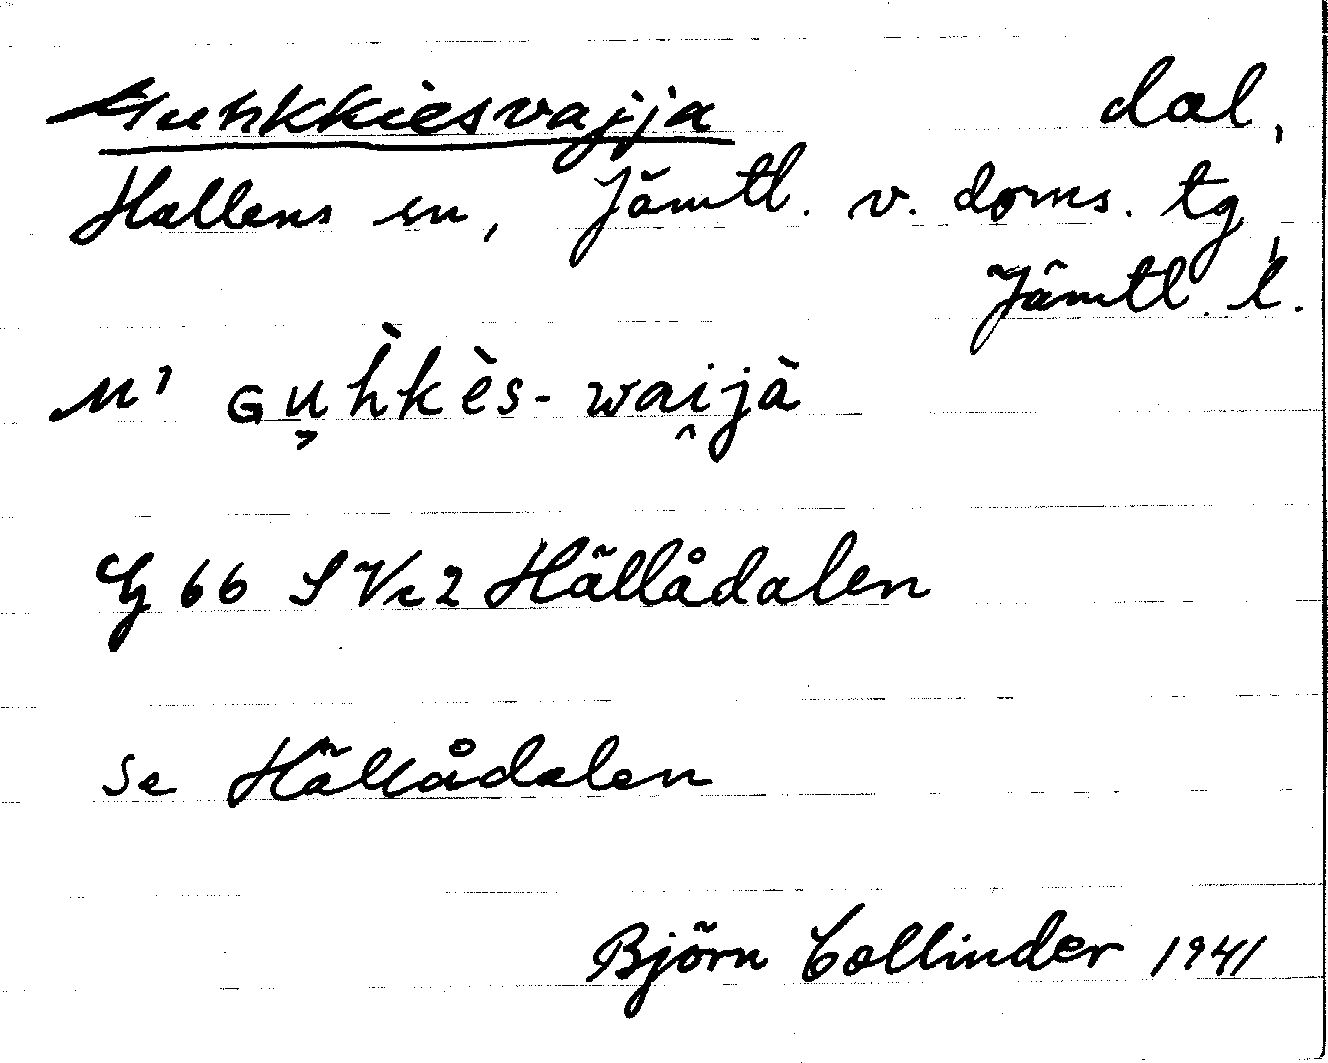 Guhkkiesvajja dal,
Hallens sn, Jämtl. v. doms. tg,
Jämtl. l.
M¹ ɢu̬h̀kès-wai̯jà
G 66 S Vc2 Hällådalen
Se Hällådalen
Björn Collinder 1941